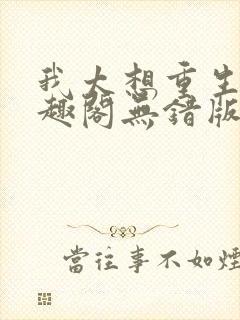 我太想重生
趣阁无错版
當往事不如煙